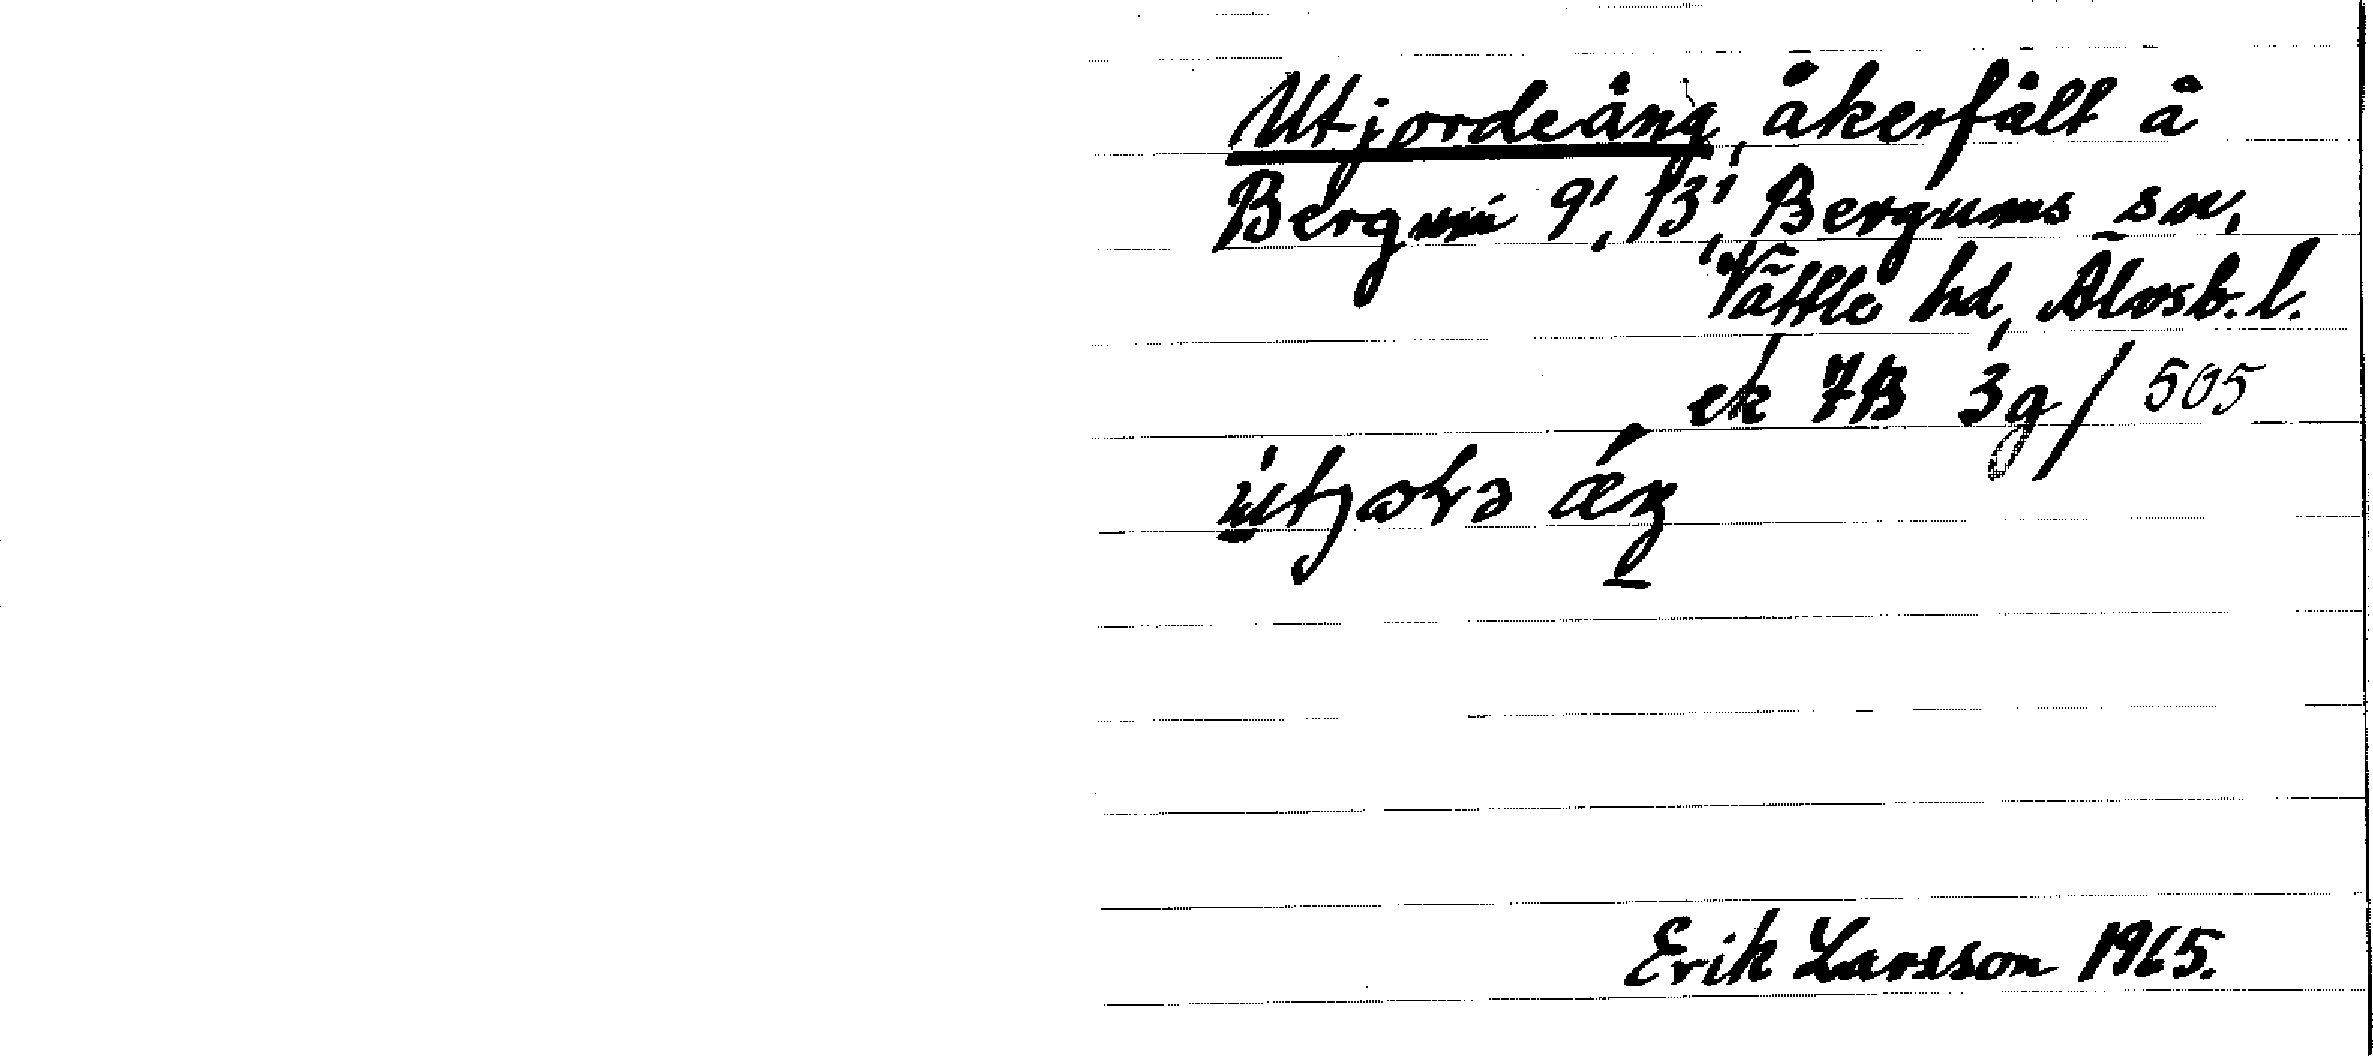 Utjordeäng, åkerfält å
Bergum 9¹, 13¹, Bergums sn,
Vättle hd, Älvsb. l.
ek 7B 3g/505
Erik Larsson 1965.